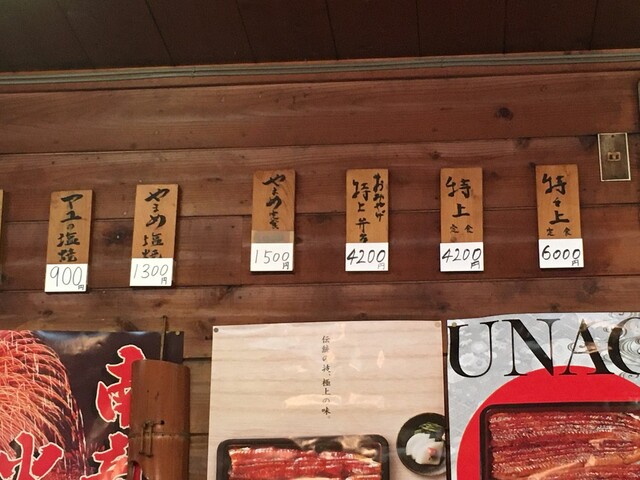 アユの塩焼
900円
やまめ塩焼
1300円
やまめ
1500円
おみやげ
特上弁当
4200円
特上
定食
4200円
特々上
定食
6000円
伝統の技、極上の味。
UNAG